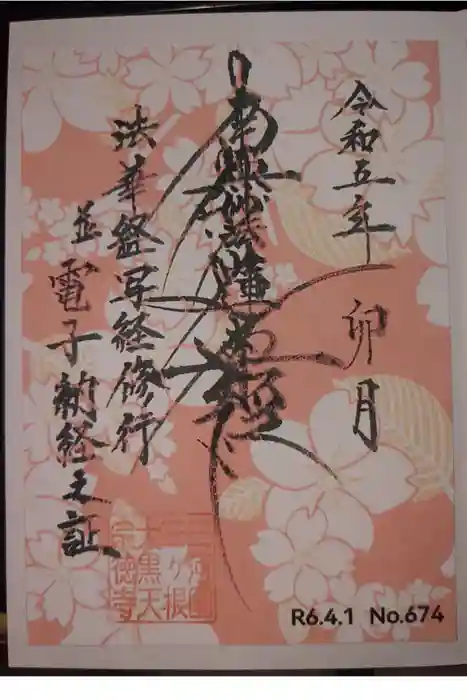 令和五年 卯月
南無妙法蓮華経
法華経写経修行
並電子納経之証
三河国
ヶ根
大黒天
宗徳寺
R6.4.1 No.674